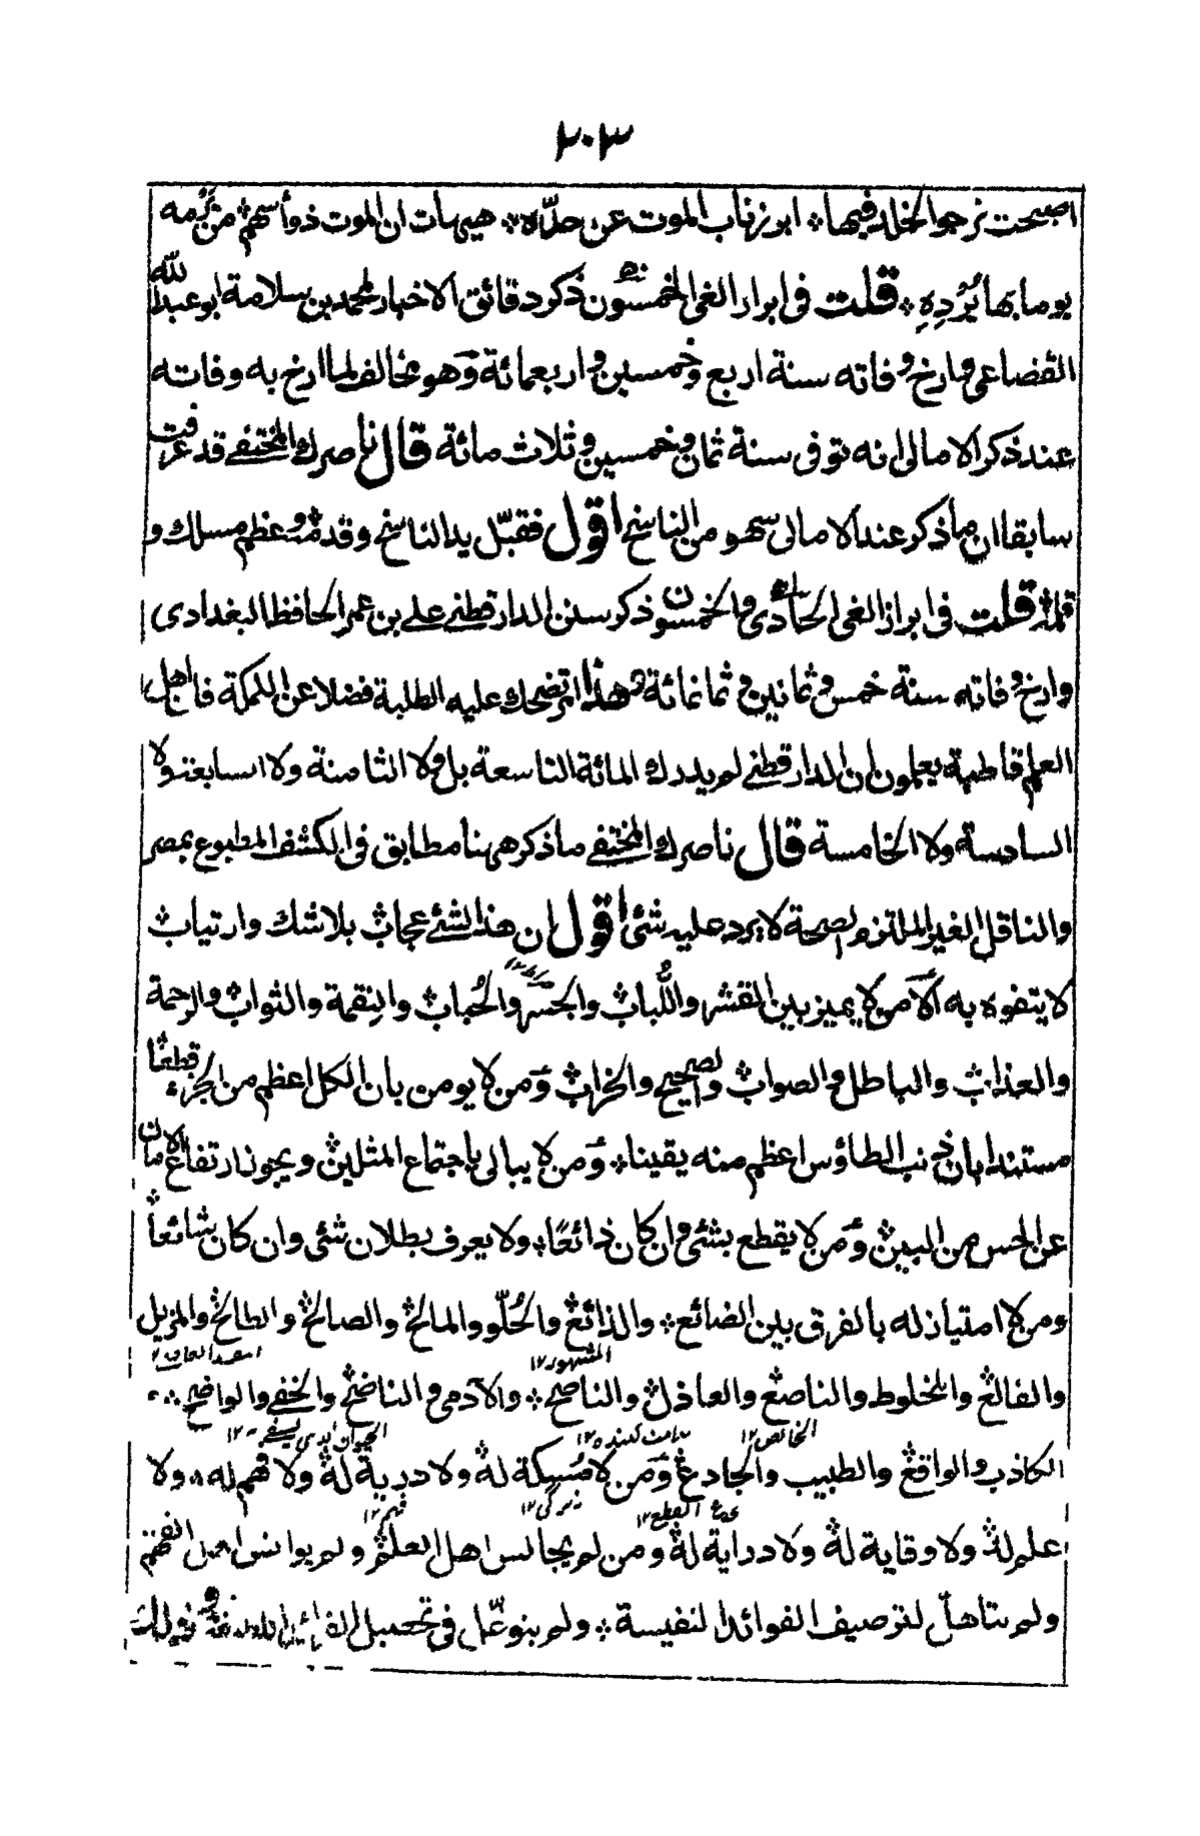 ٢٠٣
اصبحت ترجو الخلد فيها ❊ ابرز ناب الموت عن حدّه ❊ هيهات ان الموت ذو أسهم ❊ من يرمه
يوما بها يُرْدِهِ ❊ قلت فى ابراز الغى الخمسون ذكر دقائق الاخبار لمحمد بن سلامة ابو عبد الله
القضاعى وارخ وفاته سنة اربع وخمسين واربعمائة وهو مخالف لما ارخ به وفاته
عند ذكر الامالى انه توفى سنة ثمان وخمسين وثلاث مائة قال ناصرك المختفے قد عرفت
سابقا ان ما ذكر عند الامالى سهو من الناسخ اقول فقبّل يد الناسخ وقدمه وعظم مسلك و
قلمه قلت فى ابراز الغى الحادى والخمسون ذكر سنن الدارقطنے علے بن عمر الحافظ البغدادى
وارخ وفاته سنة خمس وثمانين وثمانمائة وهذا امر تضحك عليه الطلبة فضلا عن الكملة فاهل
العلم قاطبة يعلمون ان الدارقطنے لم يدرك المائة التاسعة بل ولا الثامنة ولا السابعة ولا
السادسة ولا الخامسة قال ناصرك المختفے ما ذكر ههنا مطابق فى الكشف المطبوع بمصر
والناقل الغير الملتزم لصحة لا يرد عليه شئ اقول ان هذا لشئے عجاب بلا شك وارتياب
لا يتفوه به الا من لا يميز بين القشر واللُّباب والجسر والحُباب والنِقمة والثواب والرحمة
والعذاب والباطل والصواب والصحيح والخراب ومن لا يومن بان الكل اعظم من الجزء قطعا
مستندا بان ذنب الطاؤس اعظم منه يقينا ❊ ومن لا يبالى باجتماع المثلين ويجوز ارتفاع الامان
عن الحس من البين ومن لا يقطع بشئ وان كان ذائعًا ❊ ولا يعرف بطلان شئ وان كان شائعاً
ومن لا امتياز له بالفرق بين الضائع ❊ والذائع والحُلّو والمالح والصالح والطالح والمزيل
والفالغ والمخلوط والناصع والعاذل والناصح ❊ والآدمى والناضح والخفے والواضح ❊
المشهور ١٢
الكاذب والواقع والطبيب والجادع ومن لا مُسكة له ولا دربة له ولا فهم له ❊ ولا
الخالص ١٢
علم له ولا وقاية له ولا دراية له ومن لم يجالس اهل العلم ولم يوانس اهل الفهم
زيركى ١٢
فهم ١٢
ولم يتاهلّ لترصيف الفوائد النفيسة ❊ ولم يتوغّل فى تحصيل